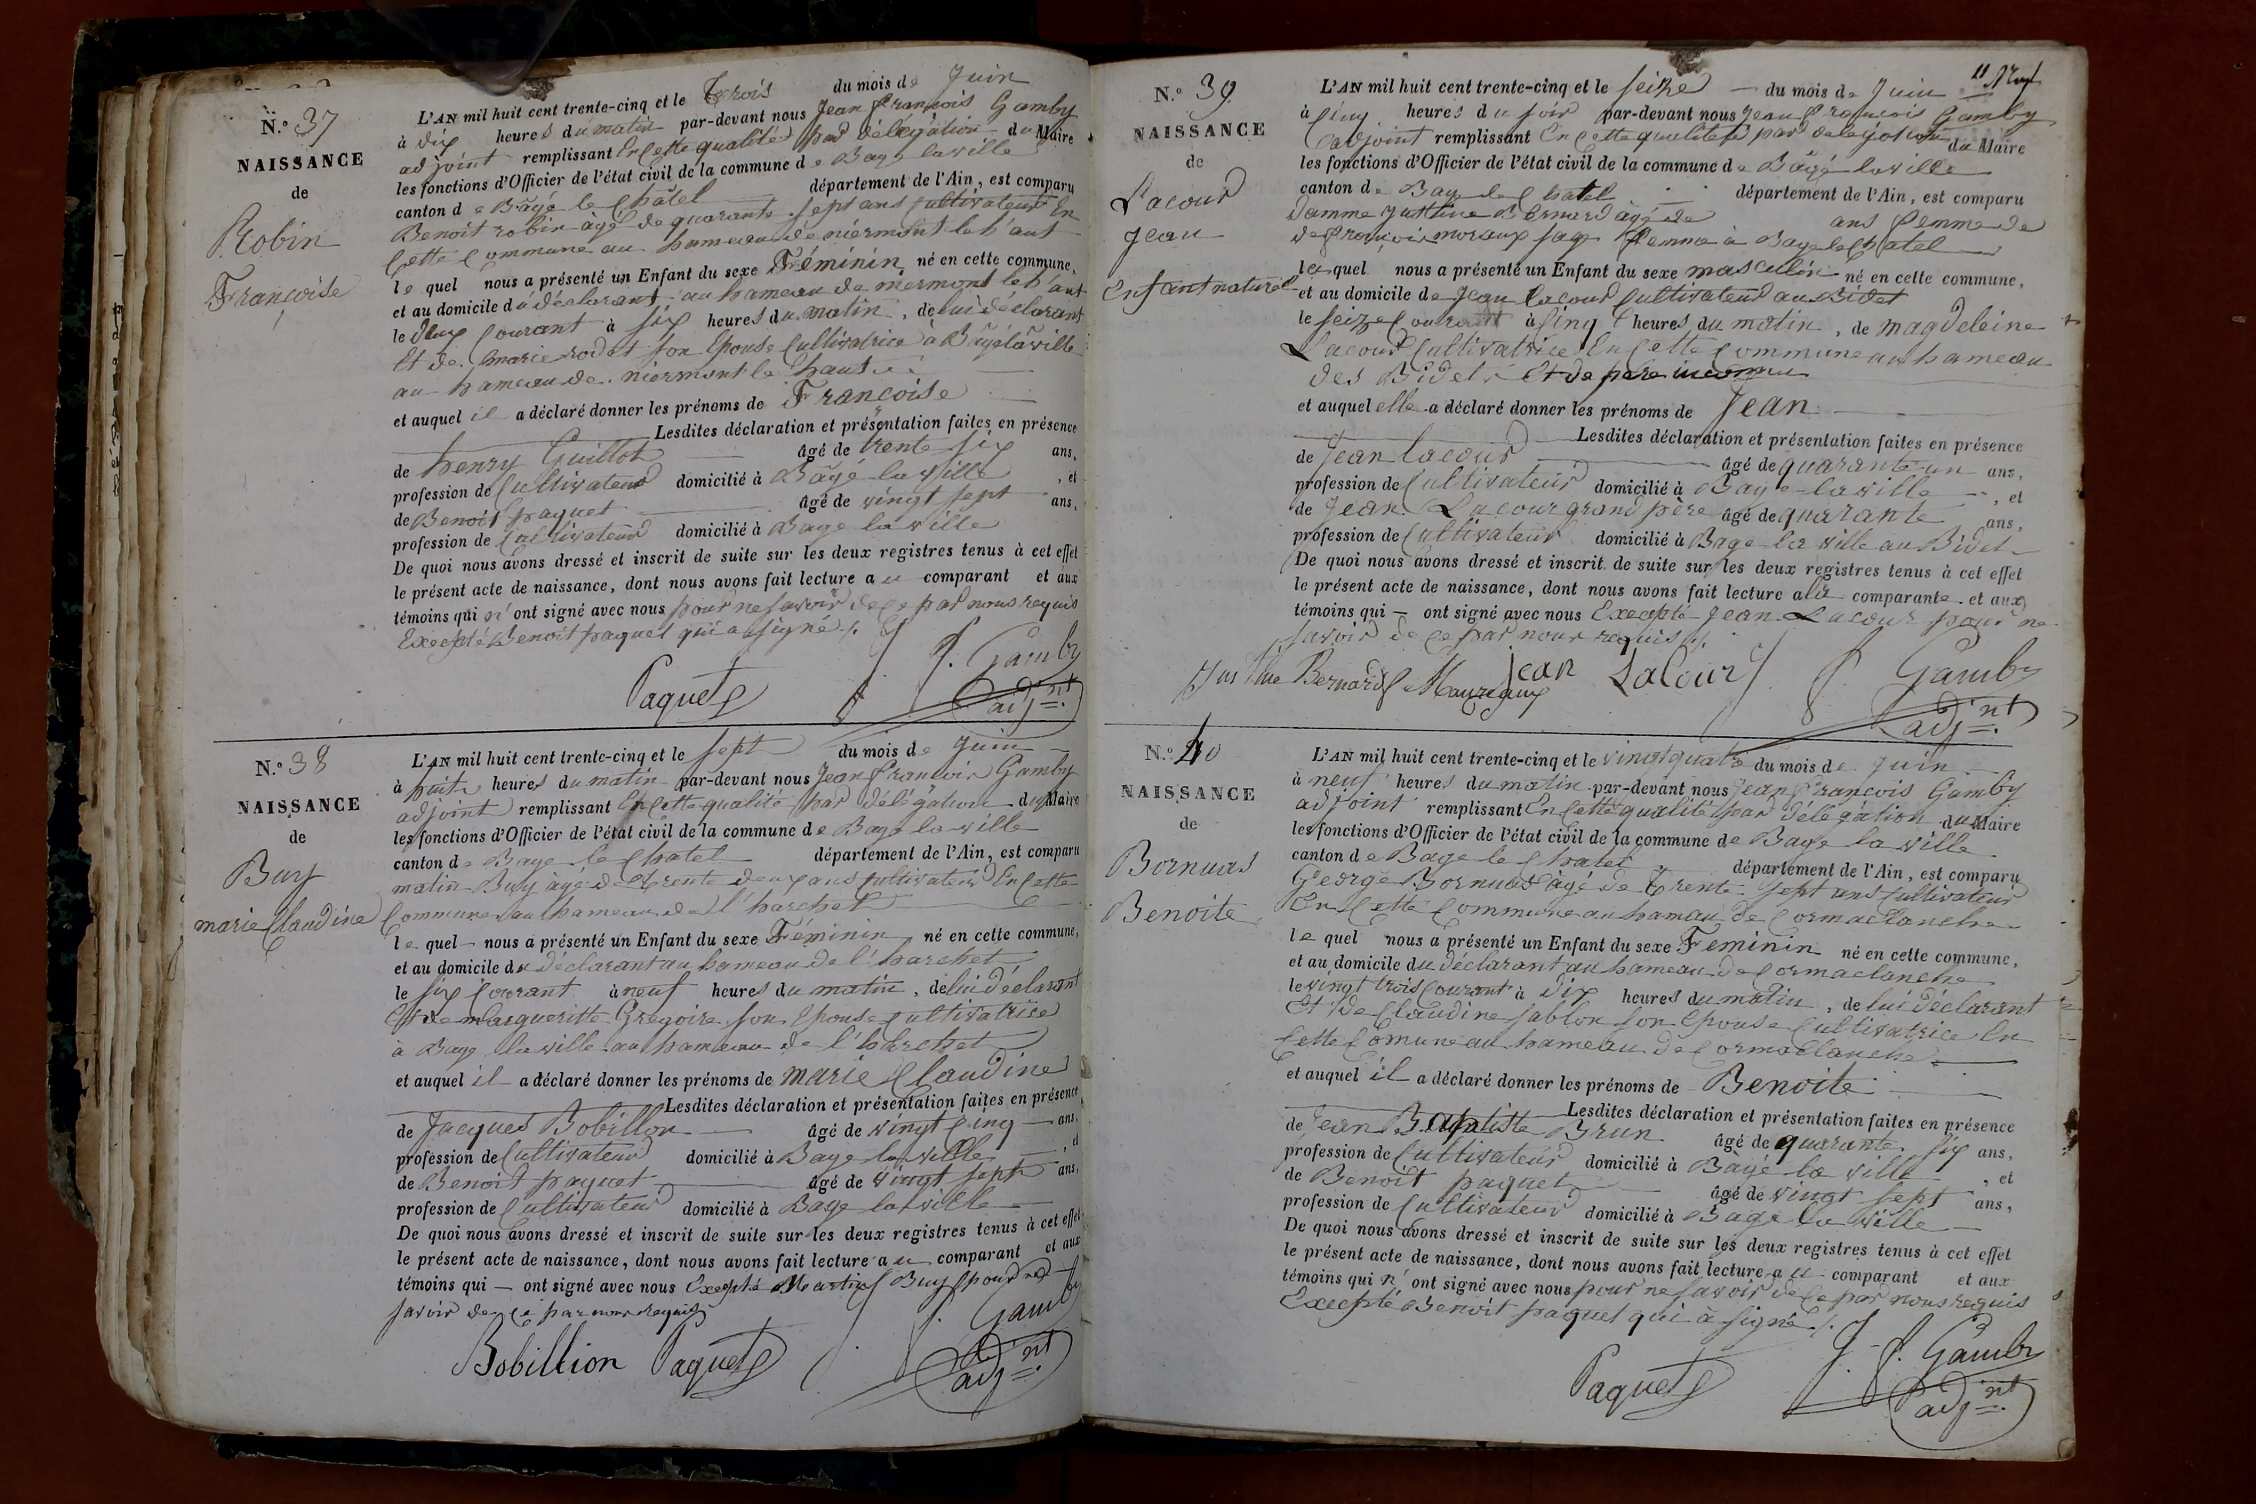 N.º 37
NAISSANCE
de
Robin
Françoise
L'AN mil huit cent trente-cinq et le Trois du mois de Juin
à dix heures du matin par-devant nous Jean françois Gamby
adjoint remplissant En Cette qualité par délégation du Maire
les fonctions d'Officier de l'état civil de la commune de Bagé la ville
canton de Bâgé le Chatel département de l'Ain, est comparu
Benoit robin âgé de quarante sept ans Cultivateur En
Cette Commune au hameau de niermont le haut
le quel nous a présenté un Enfant du sexe Féminin né en cette commune,
et au domicile du déclarant au hameau de niermont le haut
le deux Courant à six heures du matin, de lui déclarant
Et de marie rodet son Epouse Cultivatrice à Bâgé la ville
au hameau de niermont le haut
et auquel il a déclaré donner les prénoms de Françoise
Lesdites déclaration et présentation faites en présence
de henry Guillot âgé de trente six ans,
profession de Cultivateur domicilié à Bâgé la ville, et
de Benoit paquet âgé de vingt sept ans,
profession de Cultivateur domicilié à Bagé la ville
De quoi nous avons dressé et inscrit de suite sur les deux registres tenus à cet effet
le présent acte de naissance, dont nous avons fait lecture au comparant et aux
témoins qui n'ont signé avec nous pour ne savoir de ce par nous requis
Excepté Benoit paquet qui a signé
Paquet J. f. Gamby
adjnt
N.º 38
NAISSANCE
de
Buy
marie Claudine
L'AN mil huit cent trente-cinq et le sept du mois de Juin
à huit heures du matin par-devant nous Jean francois Gamby
adjoint remplissant En Cette qualité par délégation du Maire
les fonctions d'Officier de l'état civil de la commune de Bagé la ville
canton de Bage le Chatel département de l'Ain, est comparu
matin Buy âgé de trente deux ans Cultivateur En Cette
Commune au hameau de l'harchet
le quel nous a présenté un Enfant du sexe Féminin né en cette commune,
et au domicile du déclarant au hameau de l'harchet
le six Courant à neuf heures du matin, de lui déclarant
Et de margueritte Gregoire son Epouse Cultivatrice
à Bage la ville au hameau de l'harchet
et auquel il a déclaré donner les prénoms de marie Claudine
Lesdites déclaration et présentation faites en présence
de Jacques Bobillon âgé de vingt Cinq ans,
profession de Cultivateur domicilié à Bage la ville, et
de Benoit paquet âgé de vingt sept ans,
profession de Cultivateur domicilié à Bage la ville
De quoi nous avons dressé et inscrit de suite sur les deux registres tenus à cet effet
le présent acte de naissance, dont nous avons fait lecture au comparant et aux
témoins qui ont signé avec nous Excepté Martin Buy pour ne
savoir de ce par nous requis
Bobillion Paquet J. f. Gamby
adjnt
11
N.º 39
NAISSANCE
de
Lacour
Jean
Enfant naturel
L'AN mil huit cent trente-cinq et le seize du mois de Juin
à Cinq heures du soir par-devant nous Jean francois Gamby
adjoint remplissant En Cette qualité par délégation du Maire
les fonctions d'Officier de l'état civil de la commune de Bâgé la ville
canton de Bage le Chatel département de l'Ain, est comparu
Damme Justine Bernard âgé de ans femme de
de françois moraux sage femme à Bage le Chatel
laquel nous a présenté un Enfant du sexe masculin né en cette commune,
et au domicile de Jean Lacour Cultivateur au Bidet
le seize Courant à Cinq heures du matin, de magdeleine
Lacour Cultivatrice En Cette Commune au hameau
des Bidets Et de pere inconnu
et auquel elle a déclaré donner les prénoms de Jean
Lesdites déclaration et présentation faites en présence
de Jean lacour âgé de quarante un ans,
profession de Cultivateur domicilié à Bage la ville, et
de Jean Lacour grand père âgé de quarante ans,
profession de Cultivateur domicilié à Bage la ville au Bidet
De quoi nous avons dressé et inscrit de suite sur les deux registres tenus à cet effet
le présent acte de naissance, dont nous avons fait lecture a la comparante et aux
témoins qui ont signé avec nous Excepté Jean Lacour pour ne
savoir de ce par nous requis
Justine Bernard Jean LaCour J. f. Gamby
adjnt
N.º 40
NAISSANCE
de
Bornuas
Benoite
L'AN mil huit cent trente-cinq et le vingt quatre du mois de Juin
à neuf heures du matin par-devant nous Jean francois Gamby
adjoint remplissant En Cette qualité par délégation du Maire
les fonctions d'Officier de l'état civil de la commune de Bage la ville
canton de Bage le Chatel département de l'Ain, est comparu
George Bornuas âgé de Trente sept ans Cultivateur
En Cette Commune au hamau de Cormaclanche
le quel nous a présenté un Enfant du sexe Feminin né en cette commune,
et au domicile du déclarant au hameau de Cormaclanche
le vingt trois Courant à dix heures du matin, de lui déclarant
Et de Claudine sablon son Epouse Cultivatrice En
Cette Comune au hameau de Cormaclanche
et auquel il a déclaré donner les prénoms de Benoite
Lesdites déclaration et présentation faites en présence
de Jean Baptiste Brun âgé de quarante six ans,
profession de Cultivateur domicilié à Bâgé la ville, et
de Benoit paquet âgé de vingt sept ans,
profession de Cultivateur domicilié à Bage la ville
De quoi nous avons dressé et inscrit de suite sur les deux registres tenus à cet effet
le présent acte de naissance, dont nous avons fait lecture au comparant et aux
témoins qui n'ont signé avec nous pour ne savoir de ce par nous requis
Excepté Benoit paquet qui à signé
Paquet J. f. Gamby
adjnt